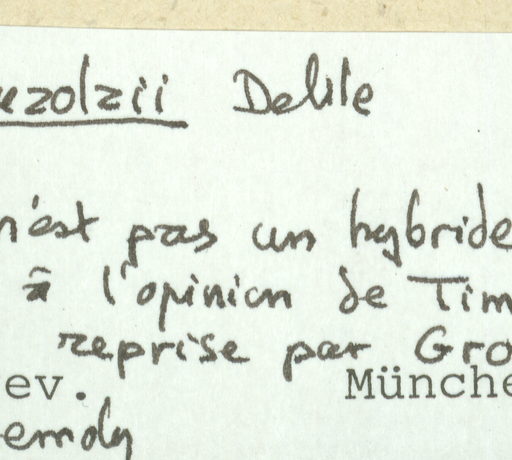 Delile
n'est pas un hybride
à l'opinion de Tim
reprise par Gro
ev. Münche